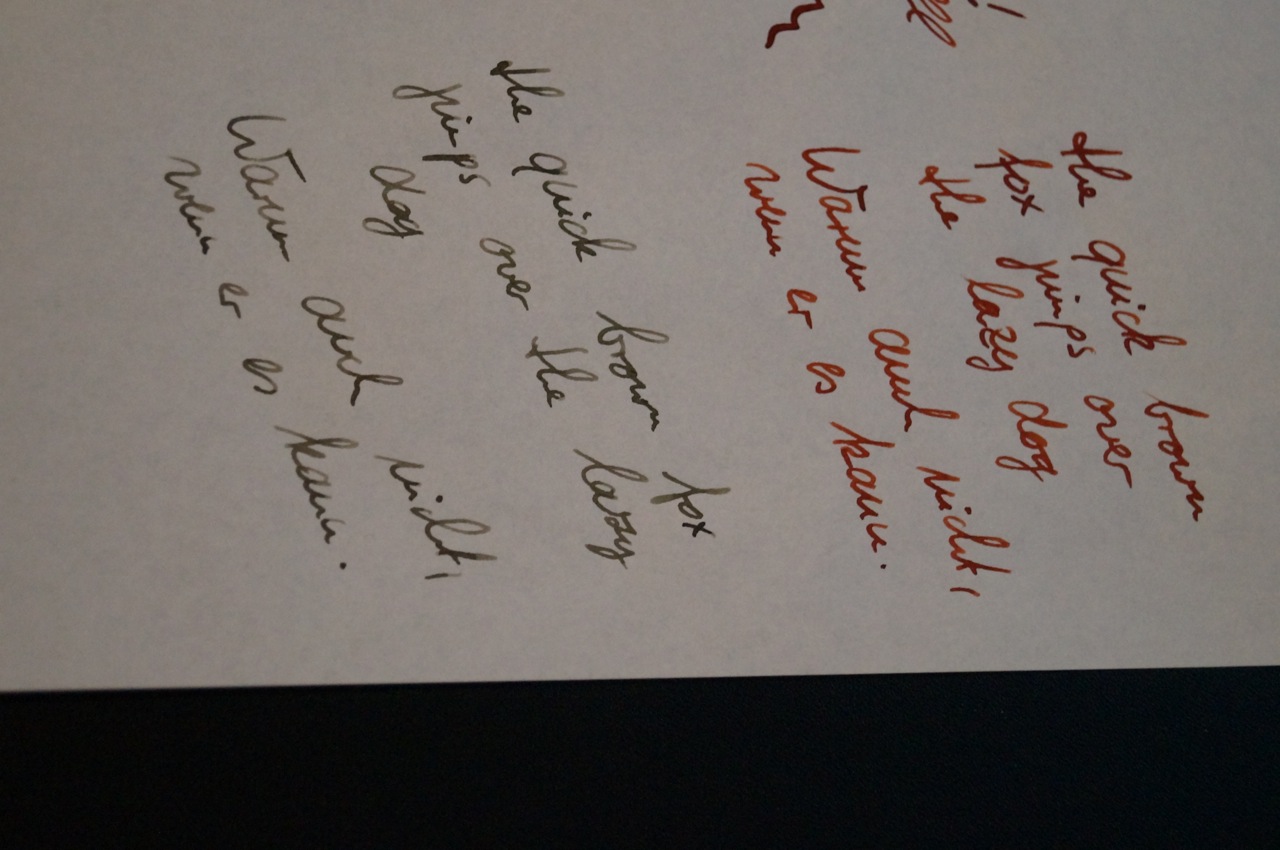 the quick brown
fox jumps over
the lazy dog
Warum auch nicht,
wenn er es kann.
the quick brown fox
jumps over the lazy
dog
Warum auch nicht,
wenn er es kann.